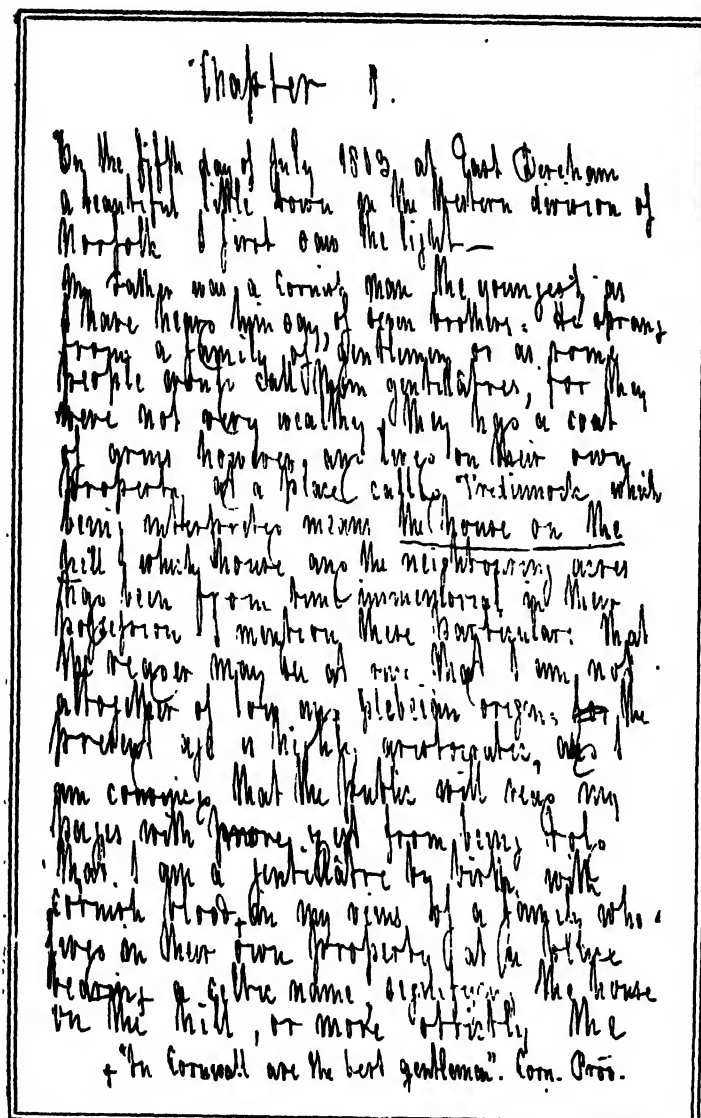 Chapter 1.
On the fifth day of July 1803, at East Dereham
a beautiful little town in the Western division of
Norfolk I first saw the light—
My Father was a Cornish man the youngest, as
I have heard him say, of seven brothers. He sprang
from a family of gentlemen or as some
people would call them gentillâtres, for they
were not very wealthy, they had a coat
of arms however and lived on their own
property at a place called Tredinnock which
being interpreted means the house on the
hill, which house and the neighbouring acres
had been from time immemorial in their
possession I mention these particulars that
the reader may see at once that I am not
altogether of low and plebeian origin, for the
present age is highly aristocratic, and I
am convinced that the public will read my
pages with more zest from being told
that I am a gentillâtre by birth with
Cornish blood + in my veins of a family who
lived on their own property at a place
bearing a Celtic name signifying the house
on the hill, or more strictly the
+ "In Cornwall are the best gentlemen". Corn. Prov.